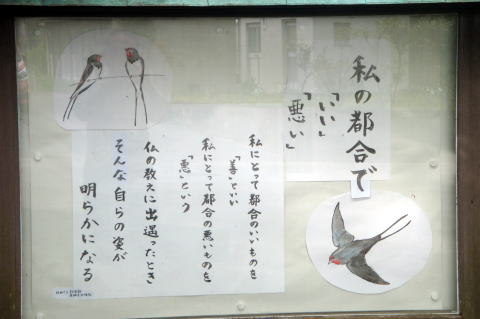 私の都合で
「いい」
「悪い」
私にとって都合のいいものを
「善」といい
私にとって都合の悪いものを
「悪」という
仏の教えに出遇ったとき
そんな自らの姿が
明らかになる